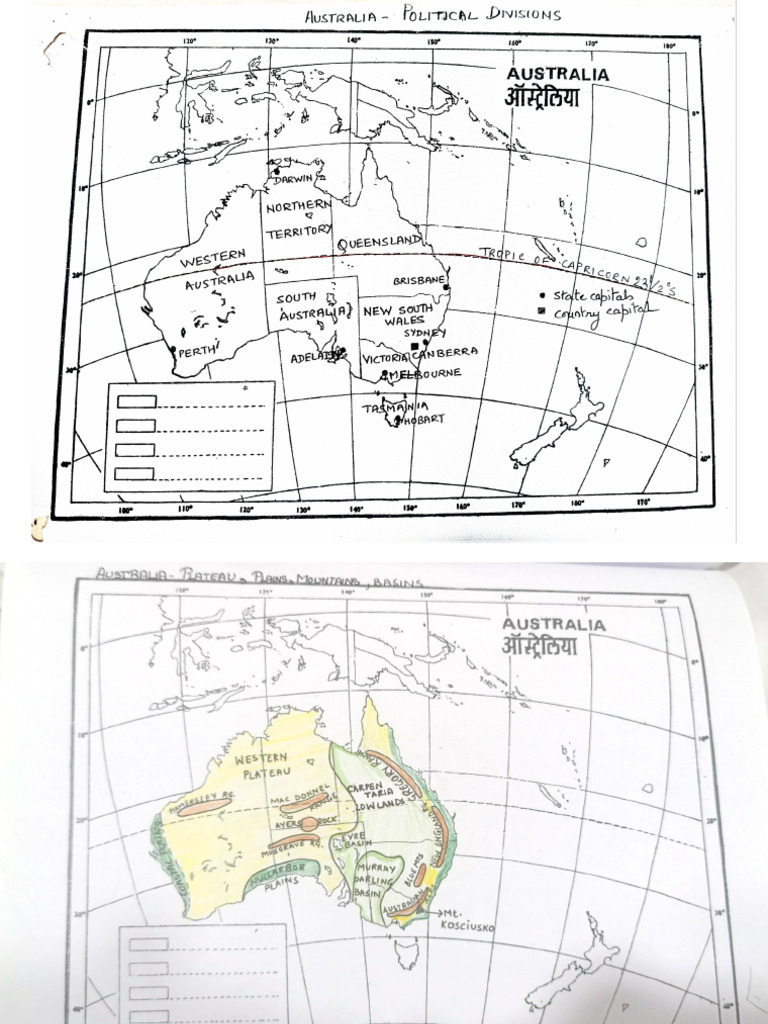 AUSTRALIA - POLITICAL DIVISIONS
120° 130° 140° 150° 160° 170° 180°
AUSTRALIA
ऑस्ट्रेलिया
0° 0°
10° 10°
DARWIN
NORTHERN
TERRITORY
QUEENSLAND
WESTERN
AUSTRALIA
TROPIC OF CAPRICORN 23 1/2° S
20° 20°
BRISBANE
• state capitals
■ country capital
SOUTH
AUSTRALIA
NEW SOUTH
WALES
SYDNEY
PERTH
ADELAIDE
VICTORIA CANBERRA
MELBOURNE
30° 30°
TASMANIA
HOBART
40° 40°
100° 110° 120° 130° 140° 150° 160° 170° 180° 170°
AUSTRALIA- PLATEAU, PLAINS, MOUNTAINS, BASINS
120° 130° 140° 150° 160° 170° 180°
AUSTRALIA
ऑस्ट्रेलिया
0° 0°
10° 10°
WESTERN
PLATEAU
GREGORY RANGE
HAMERSLEY RG.
MAC DONNEL
RANGE
CARPEN
TARIA
LOWLANDS
20° 20°
AYERS ROCK
NEW ENGLAND RG.
MUSGRAVE RG.
EYRE
BASIN
COASTAL PLAINS
NULLARBOR
PLAINS
MURRAY
DARLING
BASIN
BLUE MTS
AUSTRALIAN ALP
Mt.
KOSCIUSKO
30° 30°
40° 40°